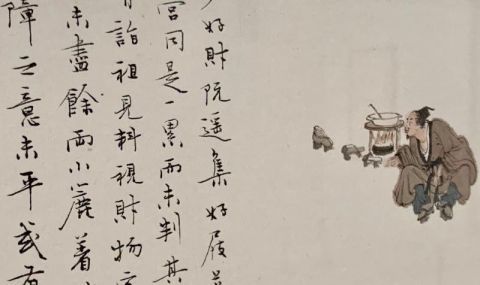 好財阮遥集好屐
營同是一累而未判其
有詣祖見料視財物
未盡餘兩小簏着
障之意未平或有